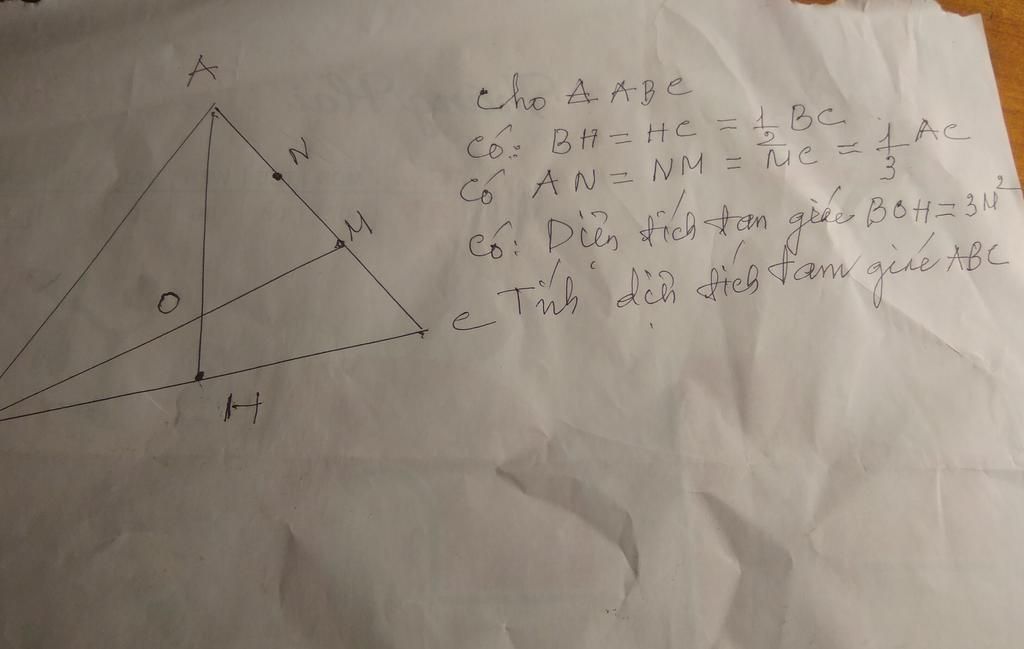 A
N
M
O
C
H
Cho Δ ABC
Có: BH = HC = 1/2 BC
Có AN = NM = MC = 1/3 AC
Có: Diên tích tan giác BOH = 3M²
Tính diên tích tam giác ABC